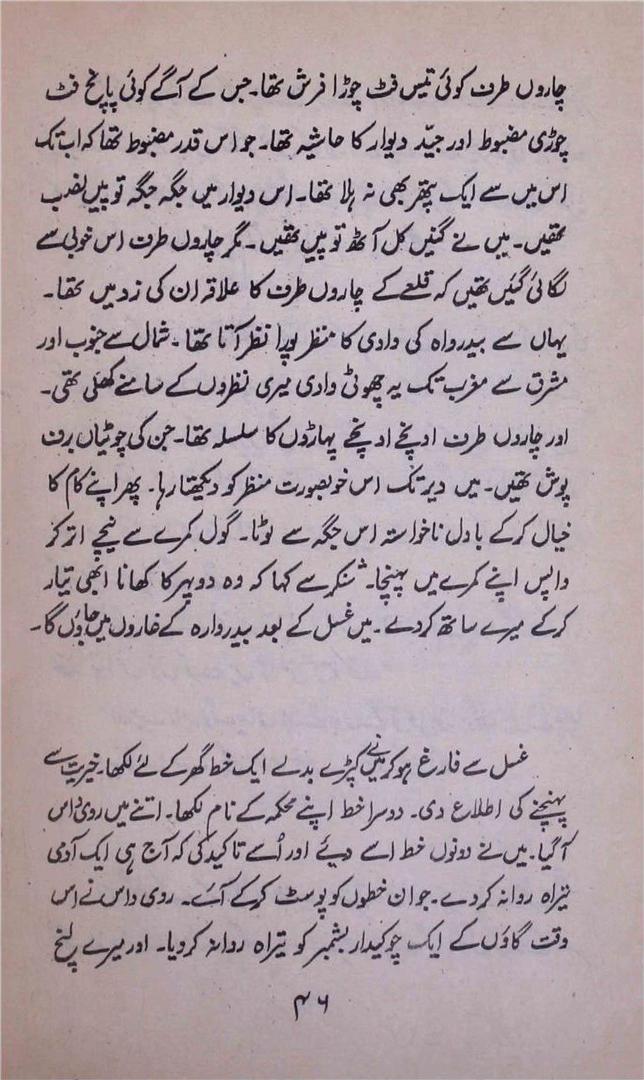 چاروں طرف کوئی تیس فٹ چوڑا فرش تھا۔ جس کے آگے کوئی پانچ فٹ
چوڑی مضبوط اور جیّد دیوار کا حاشیہ تھا۔ جو اس قدر مضبوط تھا کہ اب تک
اس میں سے ایک پتھر بھی نہ ہلا تھا۔ اس دیوار میں جگہ جگہ توپیں نصب
تھیں۔ میں نے گنیں کل آٹھ توپیں تھیں۔ مگر چاروں طرف اس خوبی سے
لگائی گئیں تھیں کہ قلعے کے چاروں طرف کا علاقہ ان کی زد میں تھا۔
یہاں سے بیدرواہ کی وادی کا منظر پورا نظر آتا تھا۔ شمال سے جنوب اور
مشرق سے مغرب تک یہ چھوٹی وادی میری نظروں کے سامنے کھلی تھی۔
اور چاروں طرف اونچے اونچے پہاڑوں کا سلسلہ تھا۔ جن کی چوٹیاں برف
پوش تھیں۔ میں دیر تک اس خوبصورت منظر کو دیکھتا رہا۔ پھر اپنے کام کا
خیال کرکے بادل ناخواستہ اس جگہ سے لوٹا۔ گول کمرے سے نیچے اتر کر
واپس اپنے کمرے میں پہنچا۔ شنکر سے کہا کہ وہ دوپہر کا کھانا ابھی تیار
کرکے میرے ساتھ کردے۔ میں غسل کے بعد بیدروارہ کے غاروں میں جاؤں گا۔
غسل سے فارغ ہوکر میں نے کپڑے بدلے ایک خط گھر کے لئے لکھا۔ خیریت سے
پہنچنے کی اطلاع دی۔ دوسرا خط اپنے محکمہ کے نام لکھا۔ اتنے میں روی داس
آگیا۔ میں نے دونوں خط اسے دیئے اور اُسے تاکید کی کہ آج ہی ایک آدمی
تیراہ روانہ کردے۔ جو ان خطوں کو پوسٹ کرکے آئے۔ روی داس نے اس
وقت گاؤں کے ایک چوکیدار بشمبر کو تیراہ روانہ کردیا۔ اور میرے لنچ
۴۶